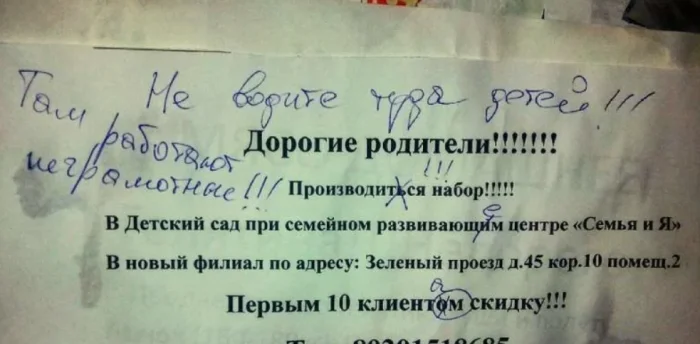 Там Не водите туда детей!!!
работают
неграмотные!!!
Дорогие родители!!!!!!!
!!!
Производиться набор!!!!!
е
В Детский сад при семейном развивающим центре «Семья и Я»
В новый филиал по адресу: Зеленый проезд д.45 кор.10 помещ.2
а
Первым 10 клиентом скидку!!!